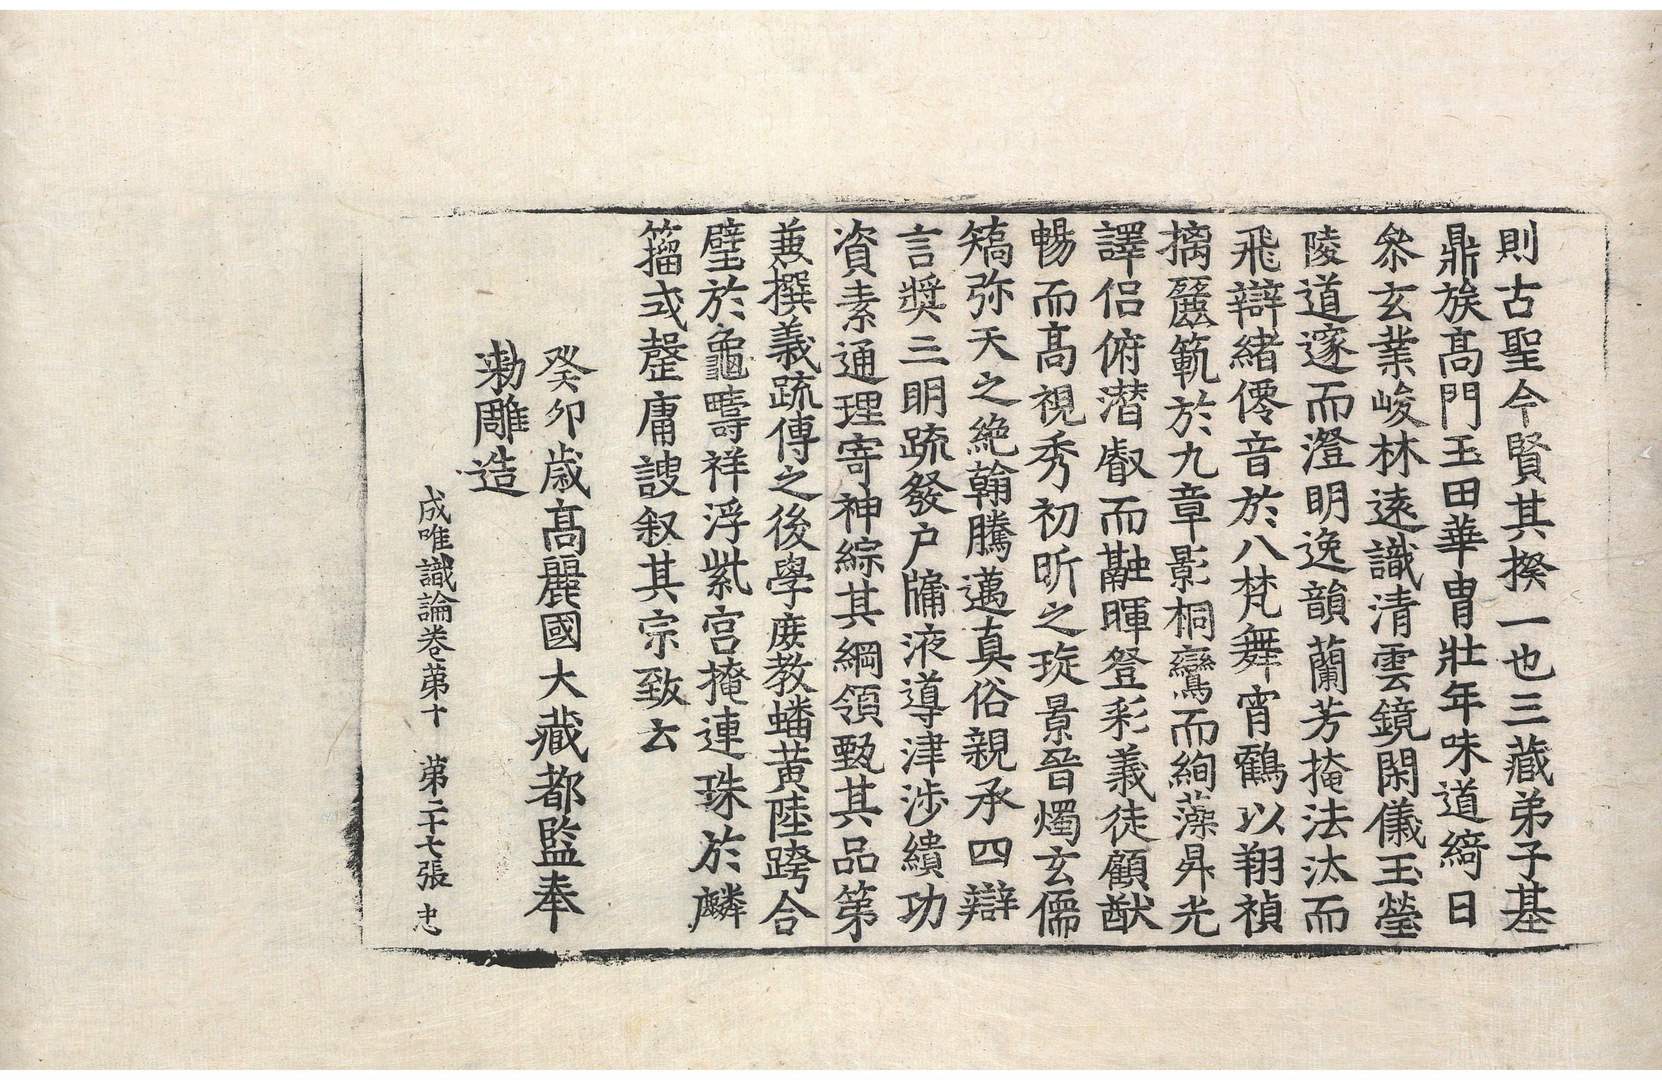 則古聖今賢其揆一也三藏弟子基
鼎族髙門玉田華胄壯年味道綺日
叅玄業峻林逺識清雲鏡閑儀玉瑩
陵道邃而澄明逸韻蘭芳掩法汰而
飛辯緖僊音於八梵舞霄鶴以翔禎
摛麗範於九章影桐鸞而絢藻昇光
譯侣俯潜叡而融暉登彩義徒顧猷
暢而髙視秀初昕之琁景晉燭玄儒
矯弥天之絶翰騰邁真俗親承四辯
言奬三明疏發户牖液導津涉繢功
資素通理寄神綜其綱領甄其品第
兼撰義疏傳之後學庶教蟠黄陸跨合
璧於龜疇祥浮紫宫掩連珠於麟
籀式罄庸謏叙其宗致云
癸卯歳髙麗國大藏都監奉
勅雕造
成唯識論卷第十　第二十七張　忠